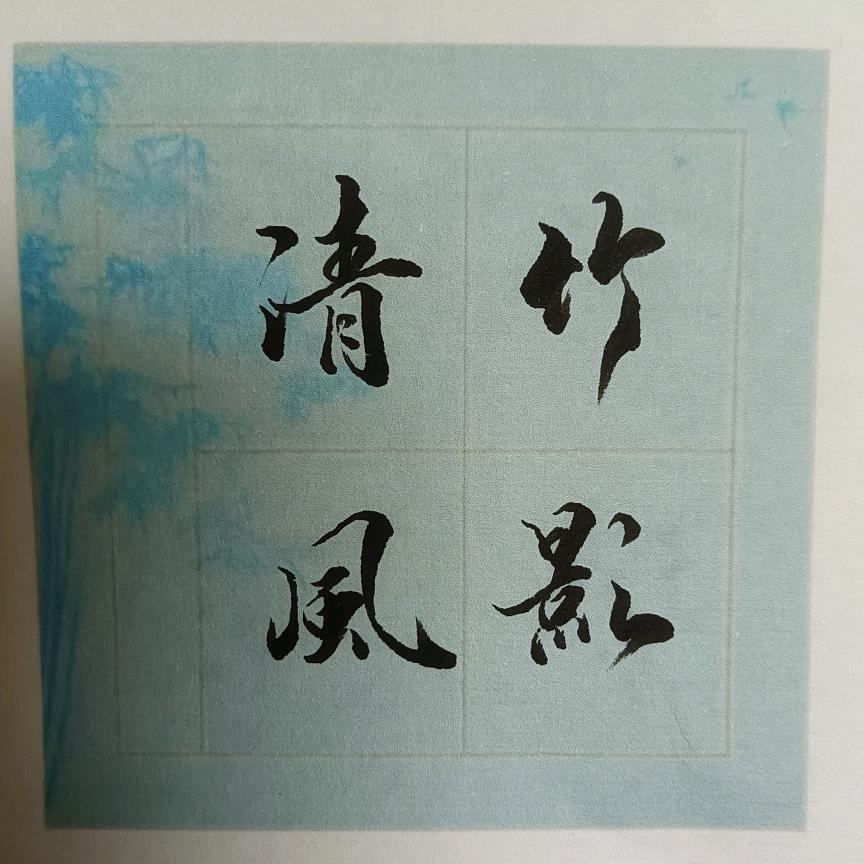 竹影
清風